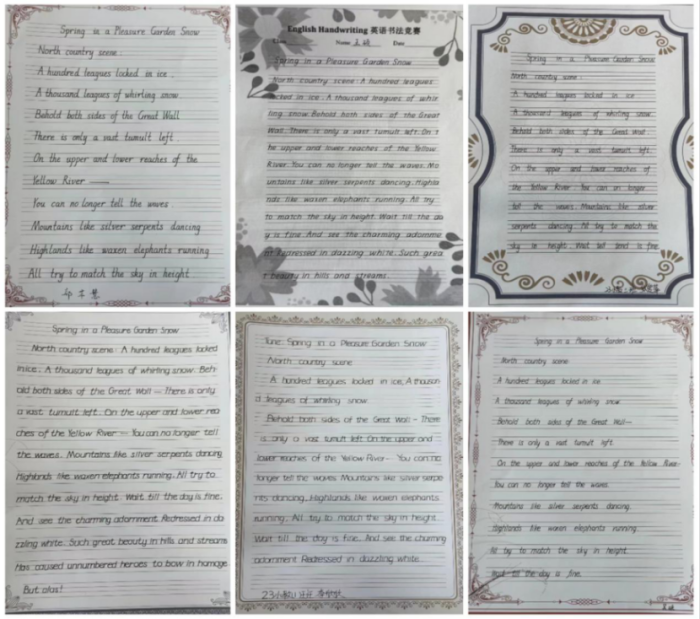 Spring in a Pleasure Garden Snow
North country scene.
A hundred leagues locked in ice.
A thousand leagues of whirling snow
Behold both sides of the Great Wall
There is only a vast tumult left.
On the upper and lower reaches of the
Yellow River ——
You can no longer tell the waves
Mountains like silver serpents dancing
Highlands like waxen elephants running
All try to match the sky in height
English Handwriting 英语书法竞赛
Class Name: Date
Spring in a Pleasure Garden Snow
North country scene: A hundred leagues
locked in ice. A thousand leagues of whir
ling snow. Behold both sides of the Great
Wall. There is only a vast tumult left. On t
he upper and lower reaches of the Yellow
River. You can no longer tell the waves. Mo
untains like silver serpents dancing. Highla
nds like waxen elephants running. All try
to match the sky in height. Wait till the da
y is fine. And see the charming adornme
nt Redressed in dazzling white. Such grea
t beauty in hills and streams.
Spring in a Pleasure Garden Snow
North country scene:
A hundred leagues locked in ice
A thousand leagues of whirling snow.
Behold both sides of the Great Wall.
There is only a vast tumult left.
On the upper and lower reaches of
the Yellow River You can no longer
tell the waves. Mountains like silver
serpents dancing. All try to match the
sky in height. Wait is fine
Spring in a Pleasure Garden Snow
North country scene: A hundred leagues locked
in ice. A thousand leagues of whirling snow. Beh-
old both sides of the Great Wall — There is only
a vast tumult left. On the upper and lower rea
ches of the Yellow River — You can no longer tell
the waves. Mountains like silver serpents dancing
Highlands like waxen elephants running. All try to
match the sky in height. Wait till the day is fine.
And see the charming adornment Redressed in da
zzling white. Such great beauty in hills and streams
Has caused unnumbered heroes to bow in homage
But alas!
Tune: Spring in a Pleasure Garden Snow
North country scene
A hundred leagues locked in ice; A thousan
d leagues of whirling snow
Behold both sides of the Great Wall - There
is only a vast tumult left. On the upper and
lower reaches of the Yellow River - You can no
longer tell the waves Mountains like silver serpe
nts dancing. Highlands like waxen elephants
running. All try to match the sky in height.
Wait till the day is fine. And see the charming
adornment Redressed in dazzling white.
Spring in a Pleasure Garden Snow
North country scene
A hundred leagues locked in ice.
A thousand leagues of whirling snow
Behold both sides of the Great Wall—
There is only a vast tumult left.
On the upper and lower reaches of the Yellow River
You can no longer tell the waves.
Mountains like silver serpents dancing.
Highlands like waxen elephants running.
All try to match the sky in height.
Wait till the day is fine.